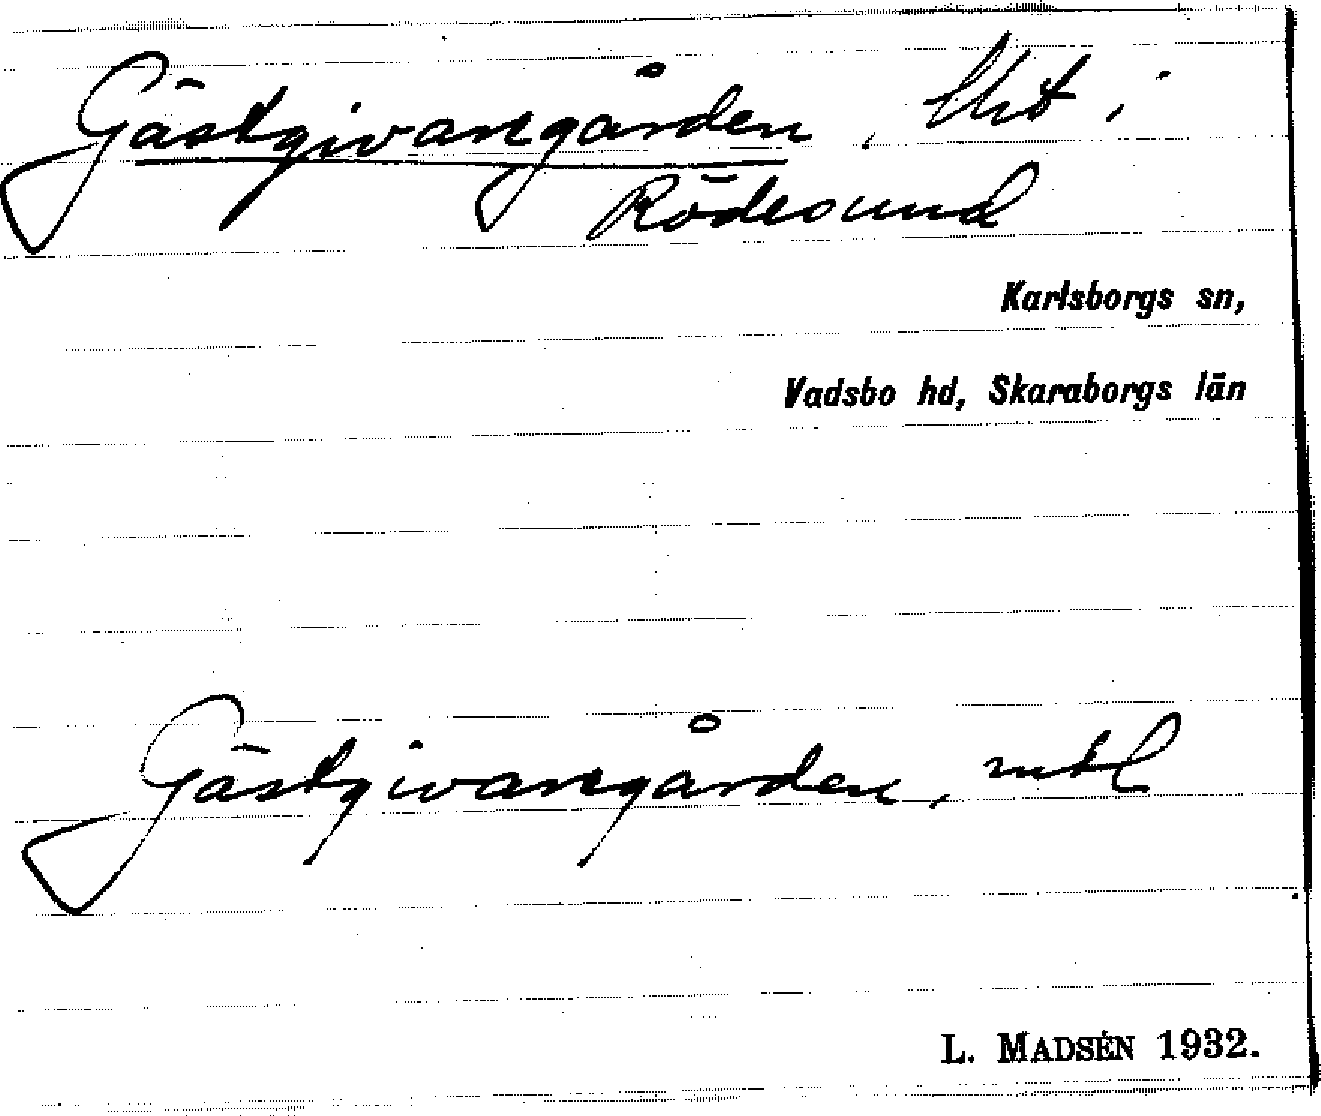 Gästgivaregården, lht i
Rödesund
Karlsborgs sn,
Vadsbo hd, Skaraborgs län
Gästgivaregården, mtl
L. MADSÉN 1932.